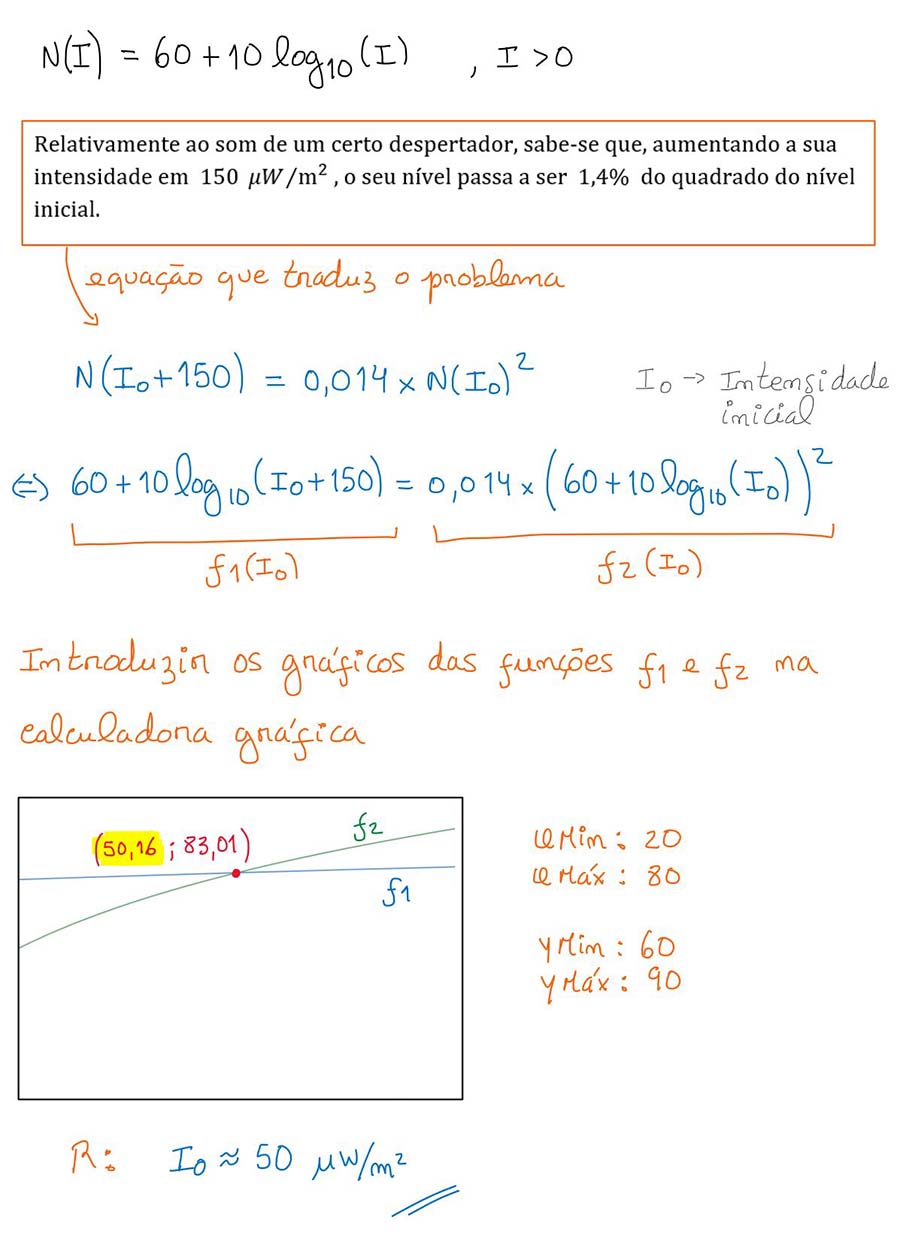 N(I) = 60 + 10 log₁₀(I) , I > 0
Relativamente ao som de um certo despertador, sabe-se que, aumentando a sua
intensidade em 150 μW/m² , o seu nível passa a ser 1,4% do quadrado do nível
inicial.
equação que traduz o problema
N(I₀+150) = 0,014 × N(I₀)²
I₀ → Intensidade
inicial
⇔ 60 + 10 log₁₀(I₀+150) = 0,014 × (60 + 10 log₁₀(I₀))²
f1(I₀) f2(I₀)
Introduzir os gráficos das funções f1 e f2 na
calculadora gráfica
f2
(50,16 ; 83,01)
f1
xMin : 20
xMáx : 80
yMin : 60
yMáx : 90
R: I₀ ≈ 50 μW/m²